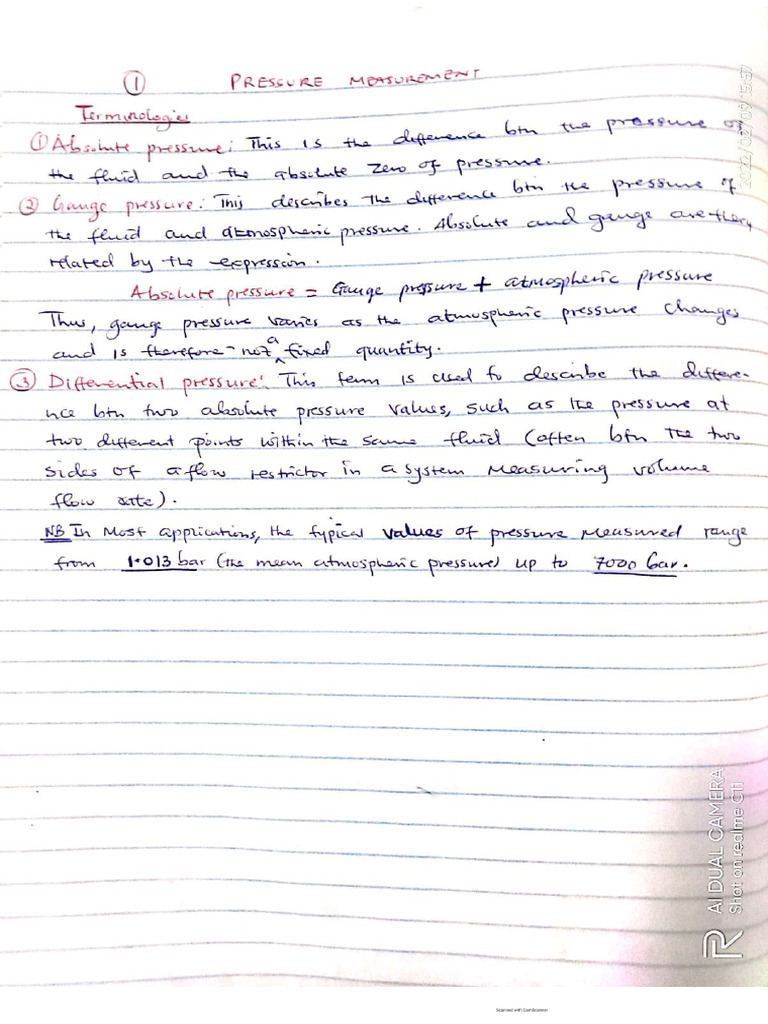 ① PRESSURE MEASUREMENT
Terminologies
① Absolute pressure: This is the difference btn the pressure of
the fluid and the absolute zero of pressure.
② Gauge pressure: This describes the difference btn the pressure of
the fluid and atmospheric pressure. Absolute and gauge are
related by the expression.
Absolute pressure = Gauge pressure + atmospheric pressure
Thus, gauge pressure varies as the atmospheric pressure changes
and is therefore not a fixed quantity.
③ Differential pressure: This term is used to describe the differe-
nce btn two absolute pressure values, such as the pressure at
two different points within the same fluid (often btn the two
sides of a flow restrictor in a system measuring volume
flow rate).
NB In Most applications, the typical values of pressure measured range
from 1.013 bar (the mean atmospheric pressure) up to 7000 bar.
AI DUAL CAMERA
Shot on realme C11
Scanned with CamScanner